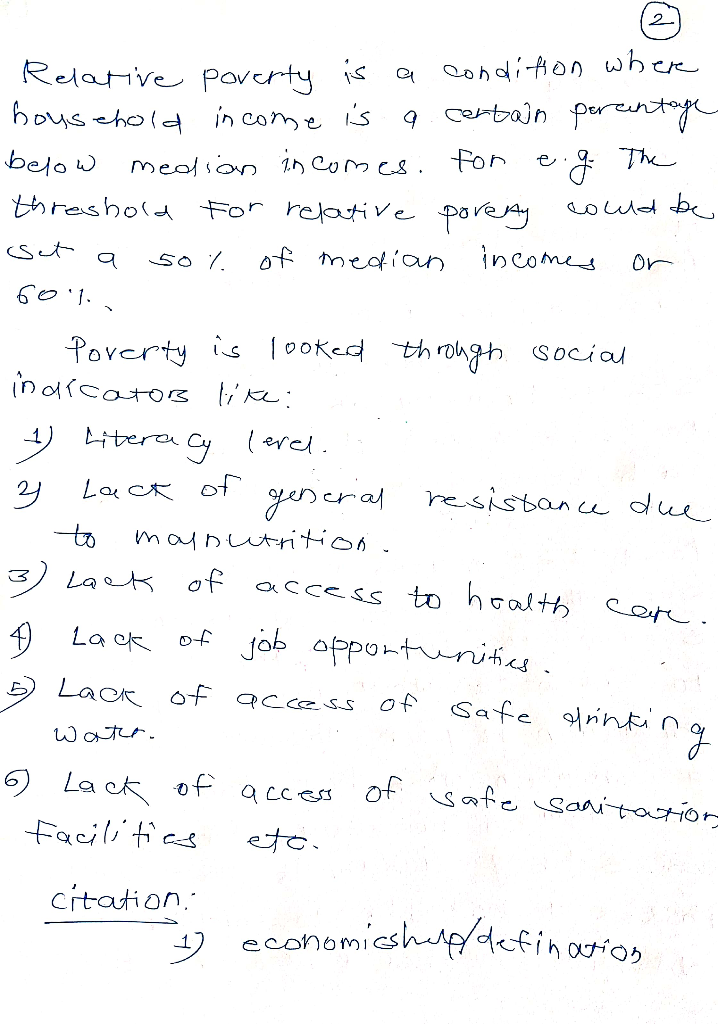 2
Relative poverty is a condition where
household income is a certain percentage
below median incomes. For e.g. The
threshold For relative povery could be
set a 50% of median incomes or
60%.
Poverty is looked through social
indicators like:
1) Literacy level.
2) Lack of general resistance due
to malnutrition.
3) Lack of access to health care.
4) Lack of job opportunities.
5) Lack of access of safe drinking
water.
6) Lack of access of safe sanitation
facilities etc.
citation:
1) economicshelp/defination